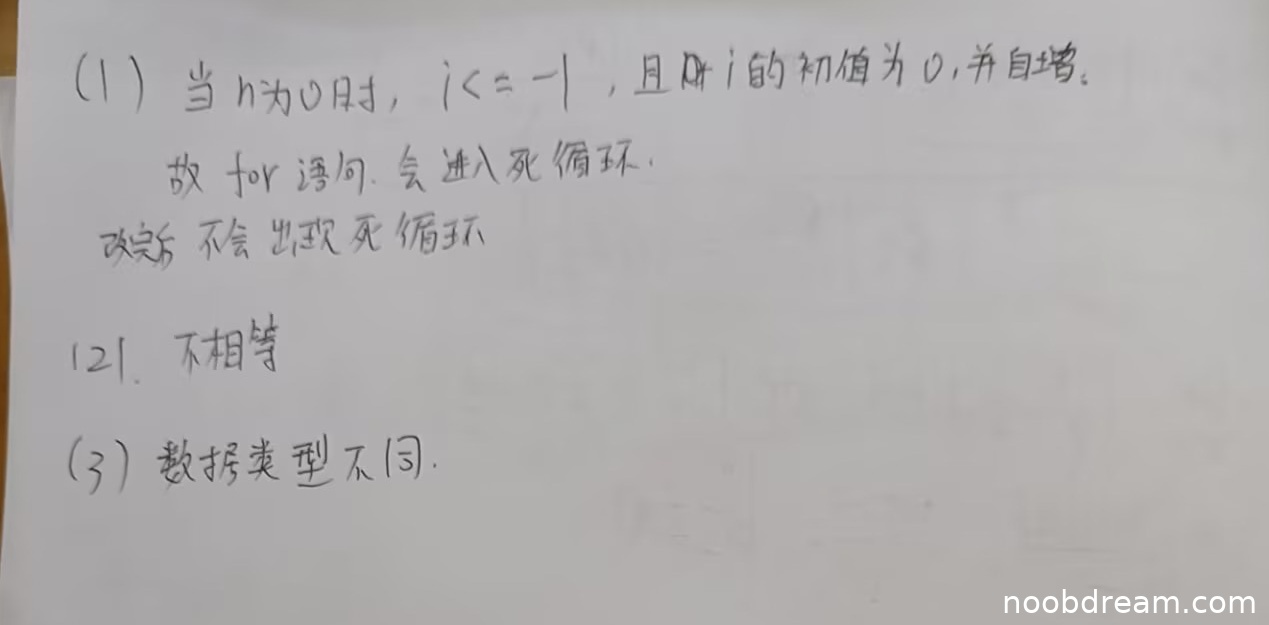 (1) 当n为0时, i<=-1, 且i的初值为0,并自增。
故 for 语句会进入死循环.
改完后 不会出现死循环
(2). 不相等
(3) 数据类型不同.
noobdream.com